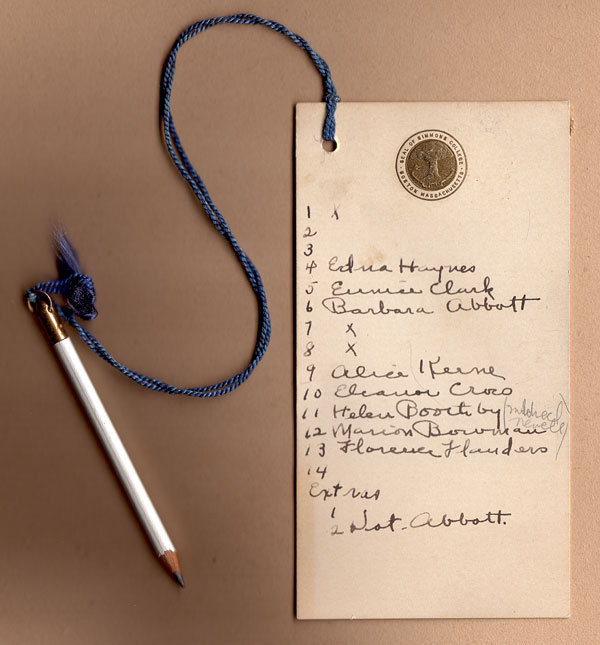 SEAL OF SIMMONS COLLEGE
BOSTON MASSACHUSETTS
1 x
2
3
4 Edna Haynes
5 Eunice Clark
6 Barbara Abbott
7 x
8 x
9 Alice Keene
10 Eleanor Cross
11 Helen Boothby (mildred
12 Marion Bowman
13 Florence Flanders
14
Extras
1
2 Not. Abbott.